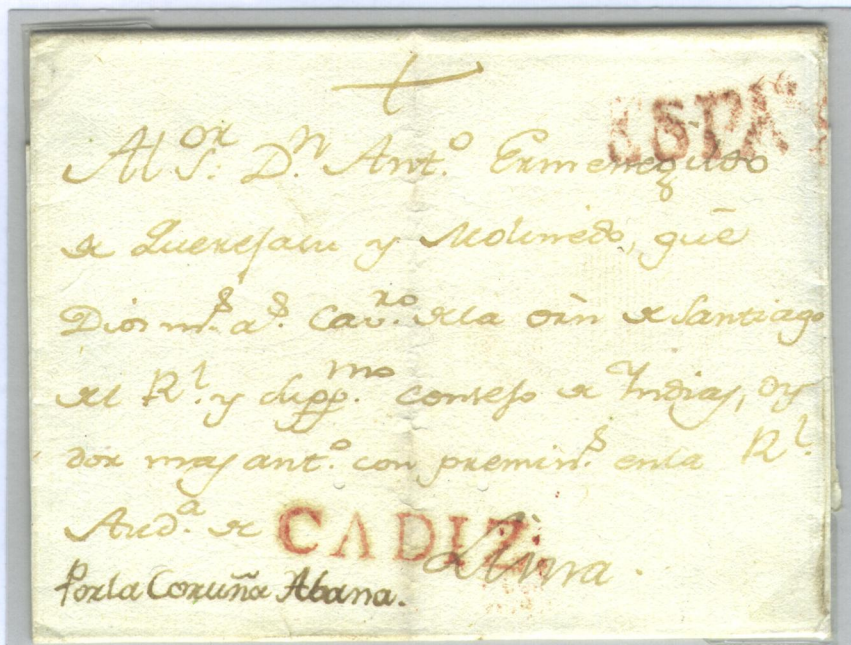 ESPA
Al S.or D.n Ant.o Ermenegildo
de Querejasu y Mollinedo, que
Dios m.s a.s Cav.ro de la orn de Santiago
del R.l y Supp.mo consejo de Indias, oy
dor mas ant.o con premin.s en la R.l
Aud.a de
CADIZ.
Lima.
Por la Coruña Abana.